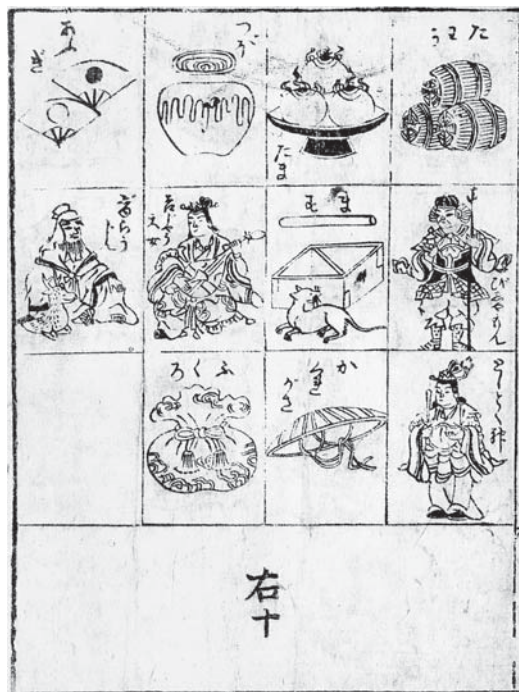 たわら
たま
つぼ
あふぎ
びしやもん
ます
天女
らうじん
としとく神
かくれがさ
ふくろ
右十